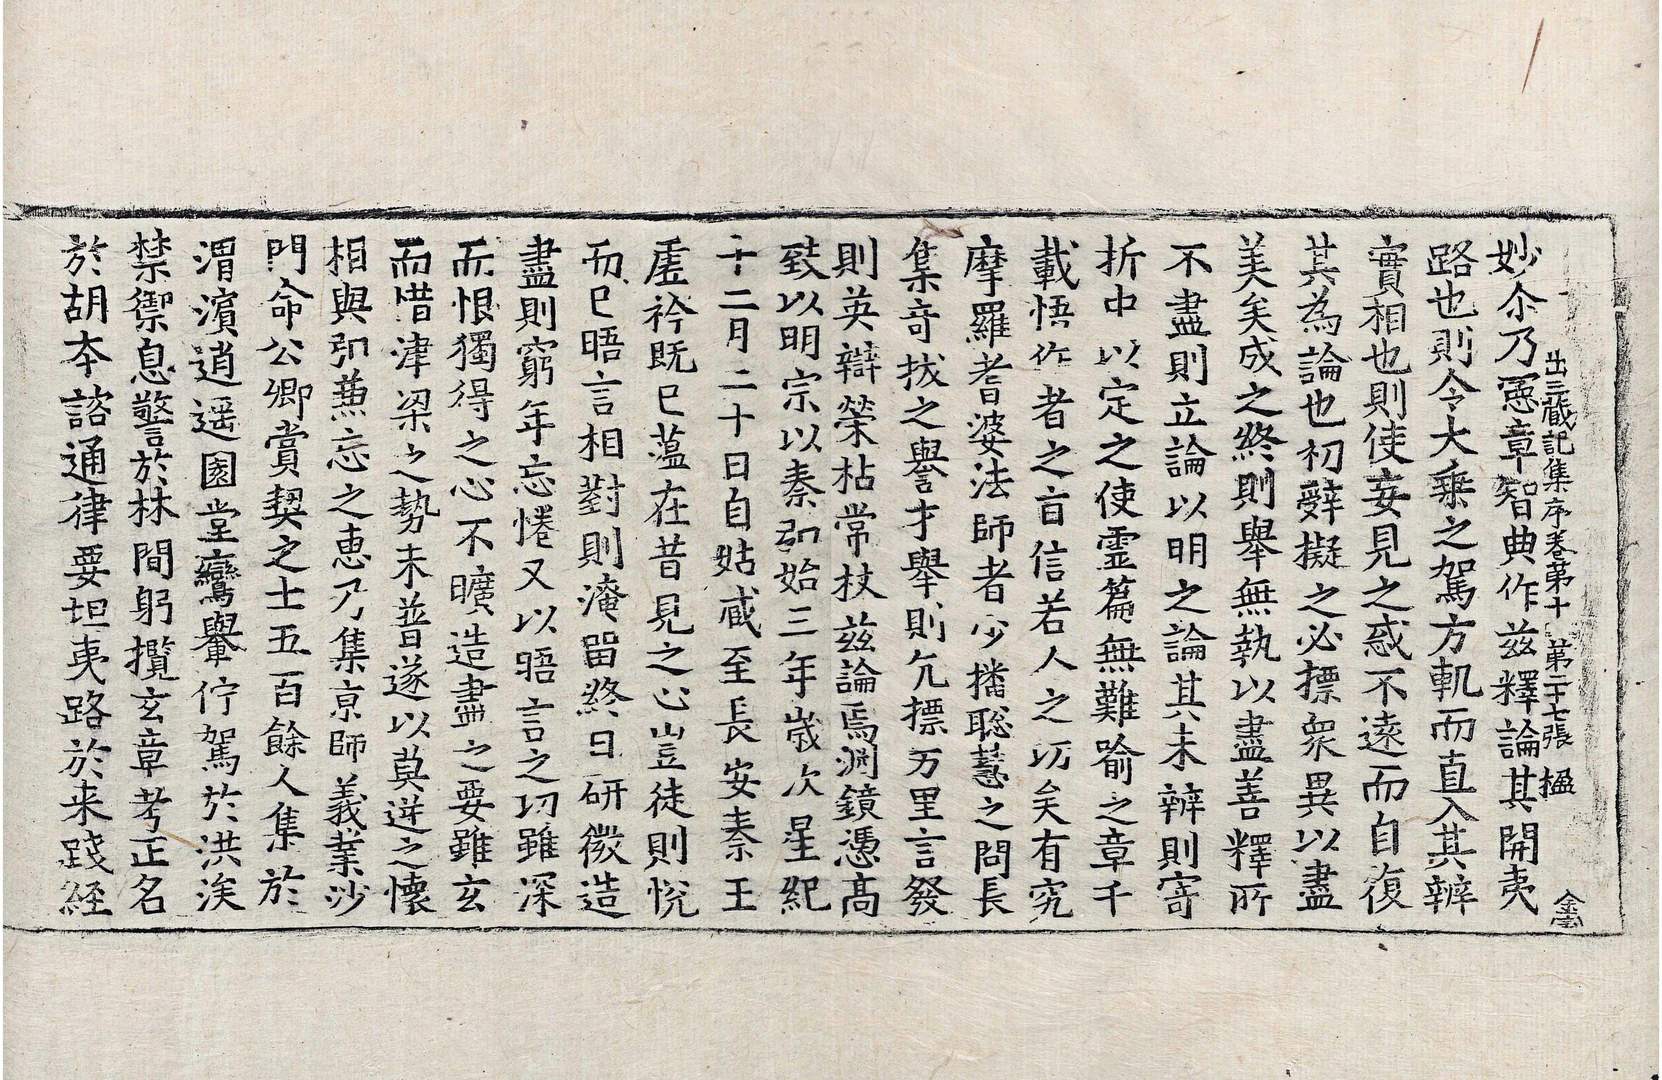 出三藏記集序卷第十 第二十七張 楹
金
妙尒乃憲章智典作玆釋論其開夷
路也則令大乗之駕方軌而直入其辨
實相也則使妄見之惑不遠而自復
其為論也初辭擬之必標衆異以盡
美矣成之終則舉無執以盡善釋所
不盡則立論以明之論其未辨則寄
折中以定之使靈篇無難喻之章千
載悟作者之旨信若人之功矣有究
摩羅耆婆法師者少播聡慧之問長
集奇拔之譽才舉則亢標万里言發
則英辯榮枯常杖玆論焉渊鏡憑髙
致以明宗以秦弘始三年歲次星紀
十二月二十日自姑臧至長安秦王
虛衿既已薀在昔見之心豈徒則悅
而已晤言相對則淹留終日研微造
盡則窮年忘惓又以晤言之功雖深
而恨獨得之心不曠造盡之要雖玄
而惜津梁之勢未普遂以莫逆之懷
相與弘蕙忘之惠乃集京師義業沙
門命公卿賞契之士五百餘人集於
渭濵逍遥園堂鸞輿佇駕於洪涘
禁禦息警於林間躬攬玄章考正名
於胡本諮通律要坦夷路於来踐経